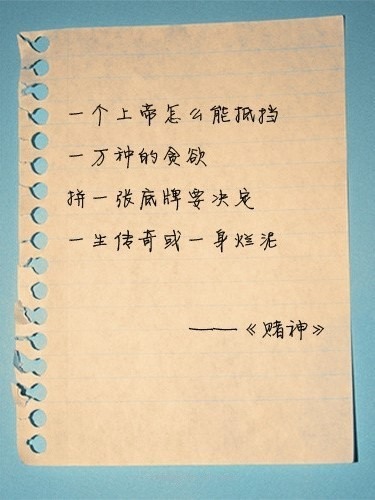 一个上帝怎么能抵挡
一万种的贪欲
拼一张底牌要决定
一生传奇或一身烂泥
——《赌神》